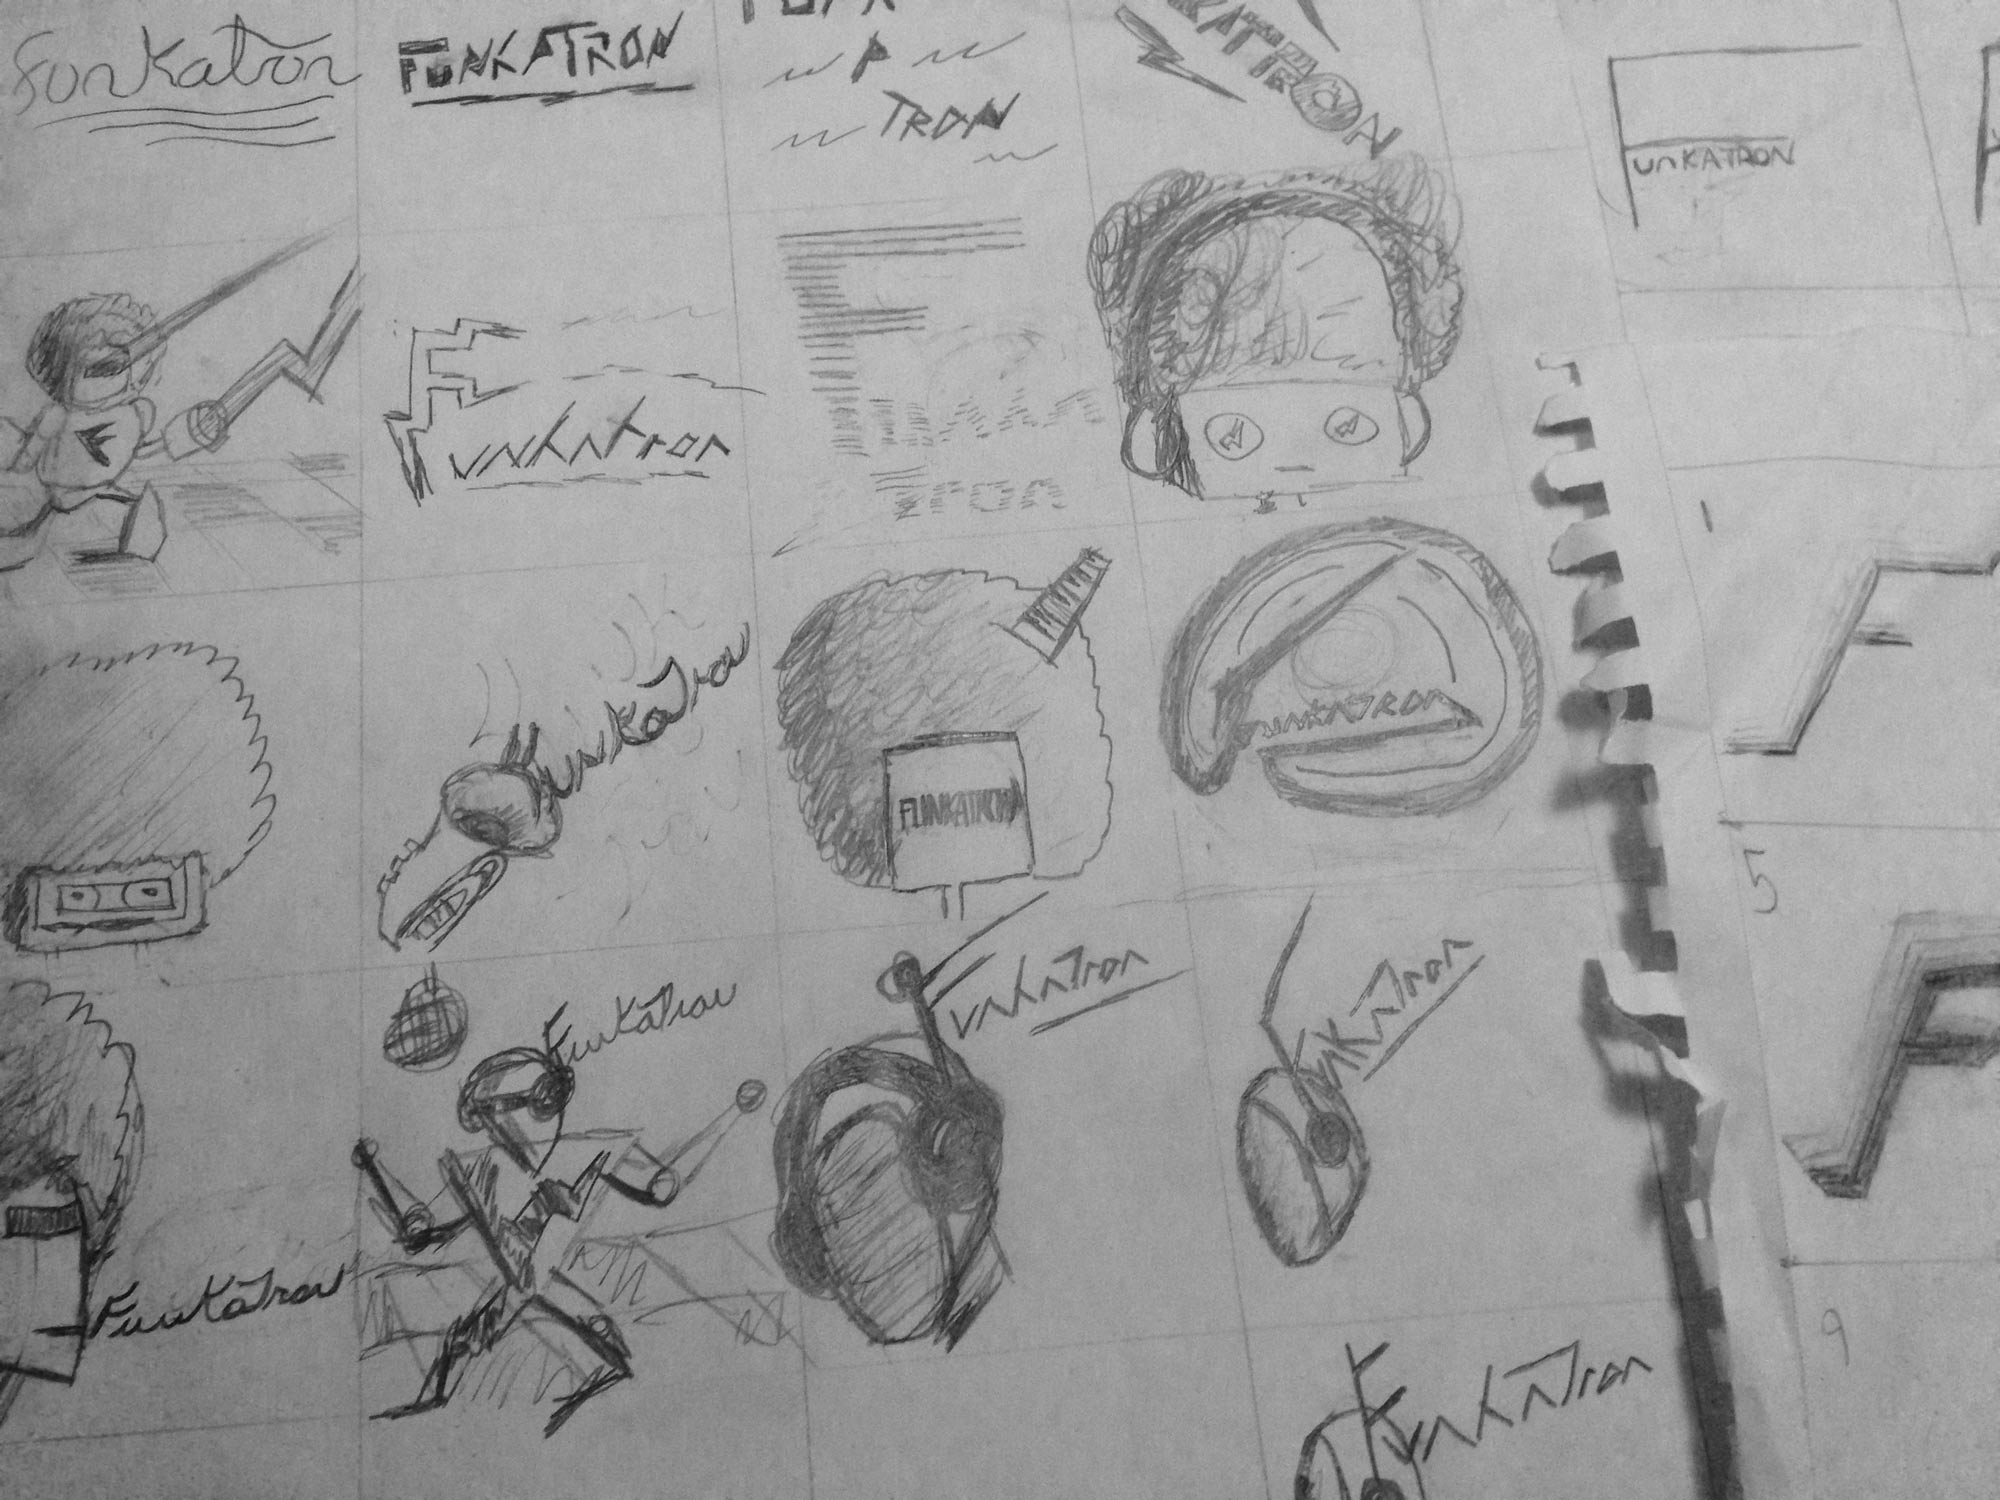 Funkatron
FUNKATRON
TRON
KATTRON
FUNKATRON
F
Funkatron
Funka
Tron
1
F
Funkatron
FUNKATRON
FUNKATRON
5
F
Funkatron
Funkatron
Funkatron
Funkatron
9
Funkatron